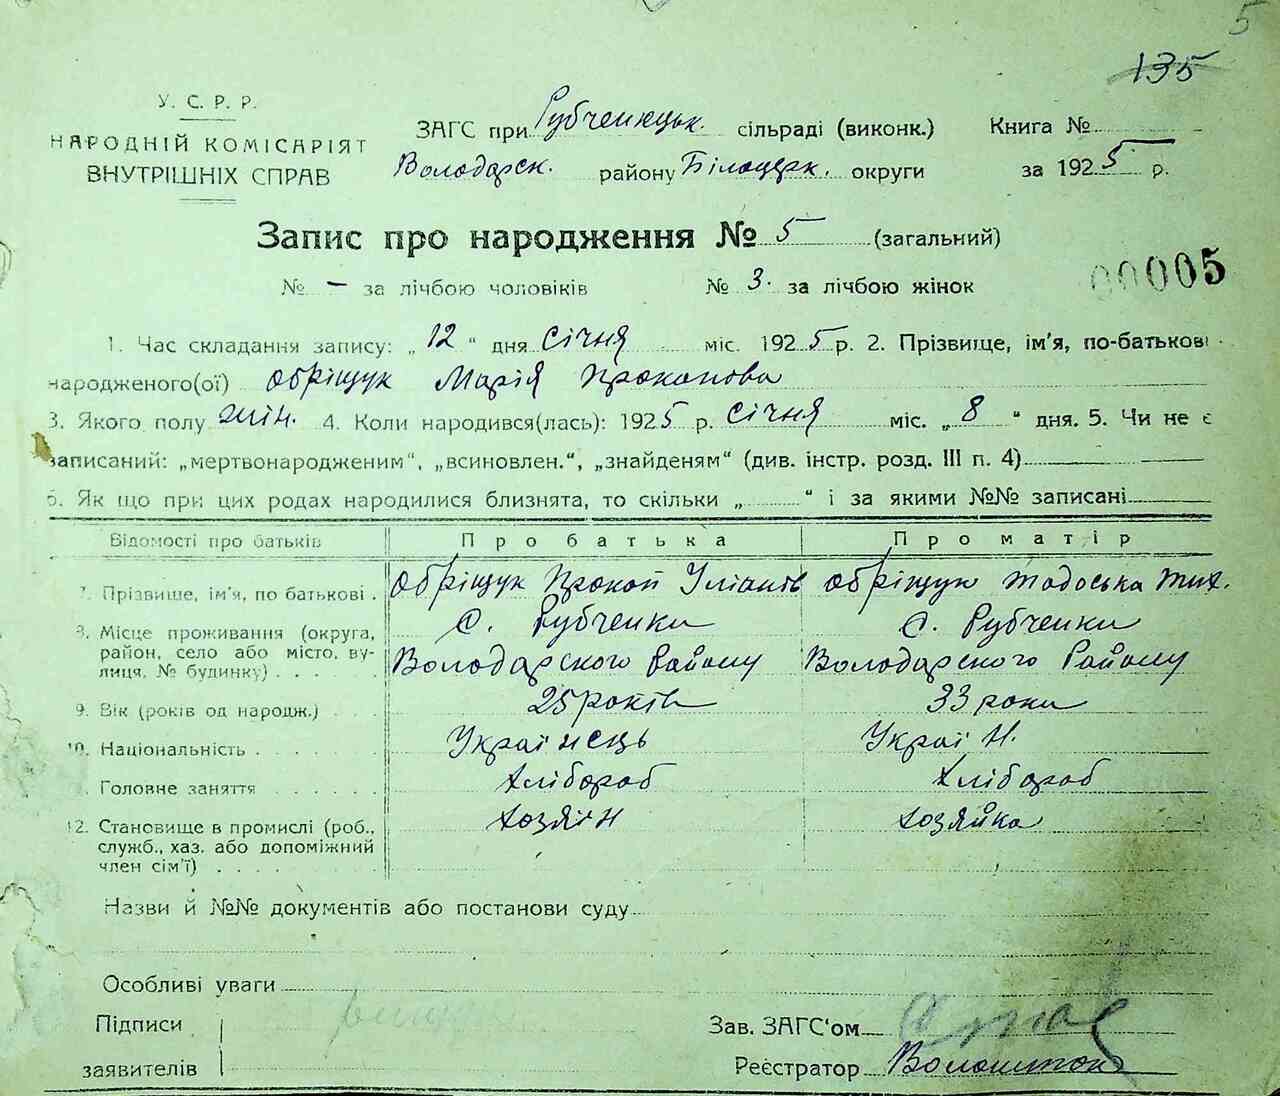 5
135
У. С. Р. Р.
НАРОДНІЙ КОМІСАРІЯТ
ВНУТРІШНІХ СПРАВ
ЗАГС при Рубченецьк. сільраді (виконк.)
Володарськ. району Білоцерк. округи
Книга №
за 1925 р.
Запис про народження № 5 (загальний)
№ – за лічбою чоловіків № 3. за лічбою жінок
00005
1. Час складання запису: „12“ дня січня міс. 1925 р. 2. Прізвище, ім'я, по-батькові
народженого(ої) Обріщук Марія Прокопова
3. Якого полу жін. 4. Коли народився(лась): 1925 р. січня міс. „8“ дня. 5. Чи не є
записаний: „мертвонародженим“, „всиновлен.“, „знайденям“ (див. інстр. розд. III п. 4)
6. Як що при цих родах народилися близнята, то скільки „ “ і за якими №№ записані
Відомості про батьків Про батька Про матір
7. Прізвище, ім'я, по батькові . Обріщук Прокоп Улянів Обріщук Тодоська Тих.
8. Місце проживання (округа, с. Рубченки с. Рубченки
район, село або місто, ву- Володарского Району Володарского Району
лиця, № будинку) . . . . .
9. Вік (років од народж.) . . . 25 років 33 роки
10. Національність . . . . . Українець Україн.
. Головне заняття . . . . . . хлібороб хлібороб
12. Становище в промислі (роб., хозяїн хозяйка
служб., хаз. або допоміжний
член сім'ї) . . . . . . . .
Назви й №№ документів або постанови суду
Особливі уваги
Підписи
заявителів
Зав. ЗАГС'ом
Реєстратор